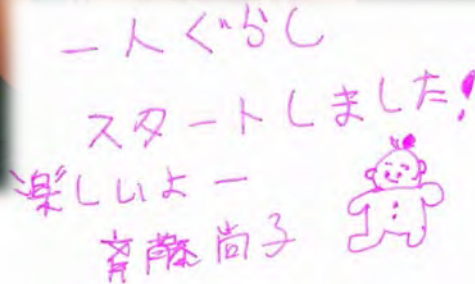 一人ぐらし
スタートしました!
楽しいよー
斉藤尚子